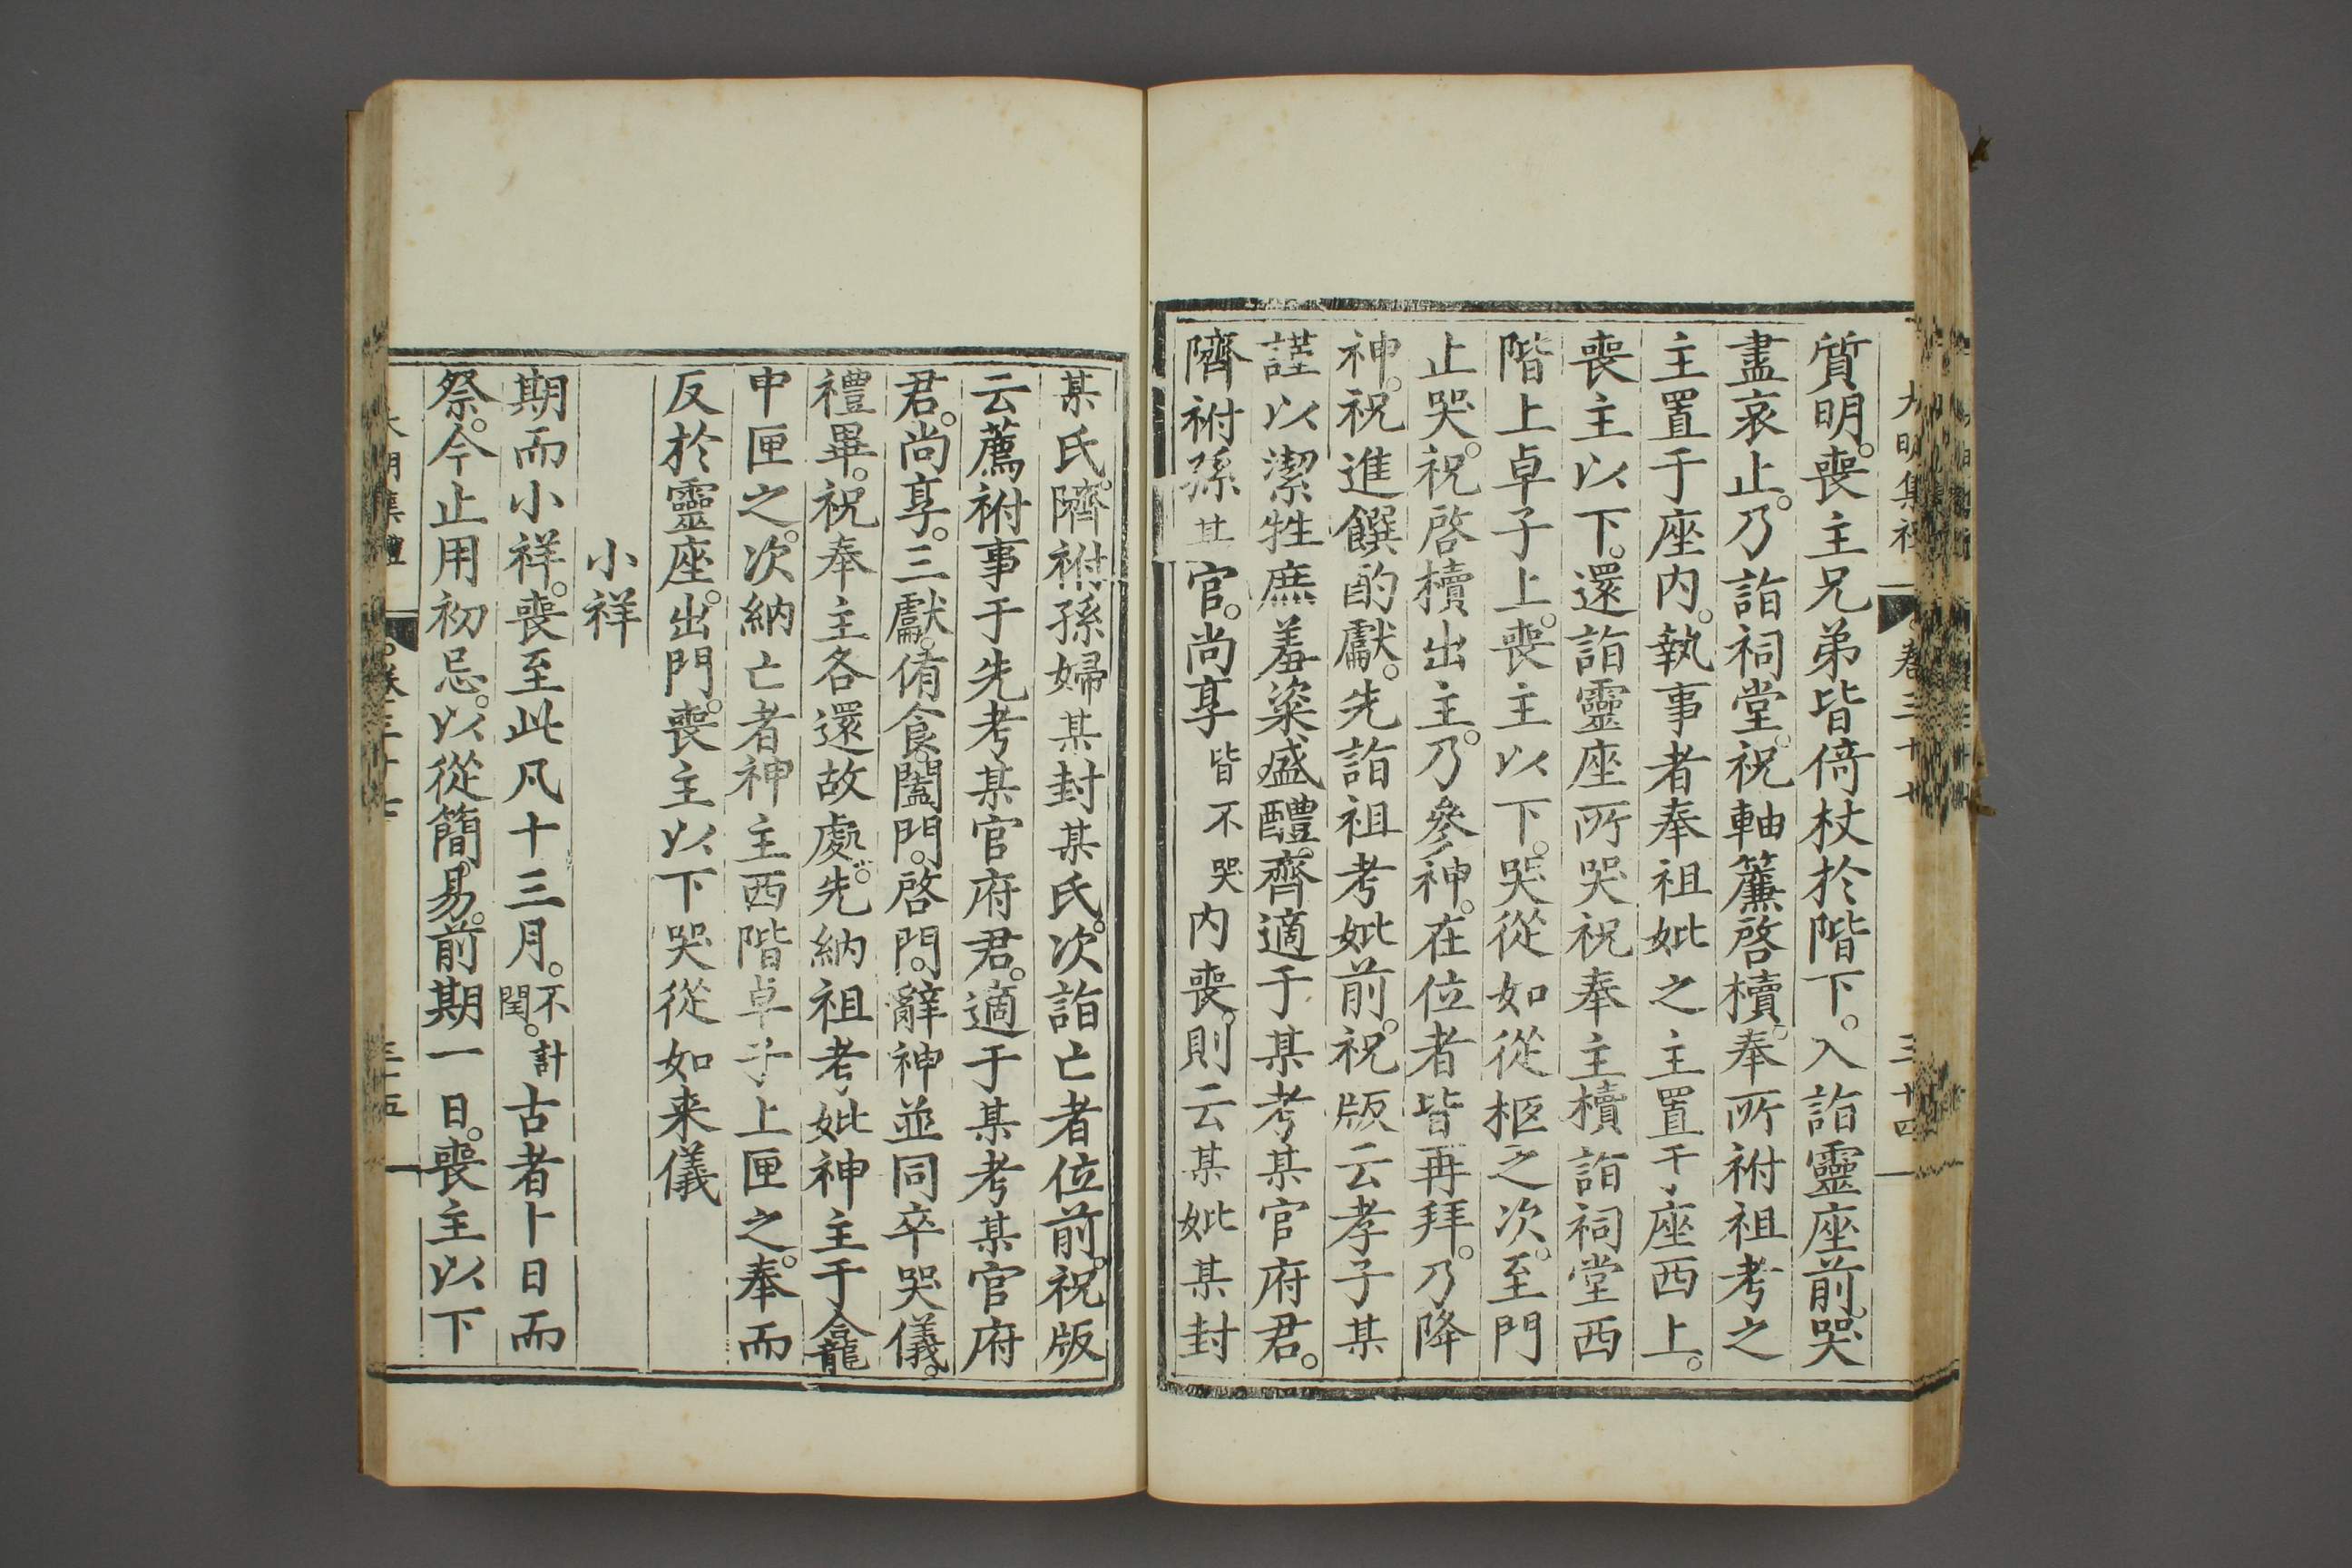 質明。喪主兄弟皆倚杖於階下。入詣靈座前。哭
盡哀止。乃詣祠堂。祝軸簾啓櫝。奉所祔祖考之
主置于座內。執事者奉祖妣之主置于座西上。
喪主以下。還詣靈座所哭祝奉主櫝詣祠堂西
階上卓子上。喪主以下。哭從如從柩之次。至門
止哭。祝啓櫝出主。乃參神。在位者皆再拜。乃降
神。祝進饌酌獻。先詣祖考妣前。祝版云孝子某
謹以潔牲庶羞粢盛醴齊適于某考某官府君。
隮祔孫某官。尚享皆不哭內喪。則云某妣某封
某氏。隮祔孫婦某封某氏。次詣亡者位前。祝版
云薦祔事于先考某官府君。適于某考某官府
君。尚享。三獻。侑食。闔門。啓門。辭神並同卒哭儀。
禮畢。祝奉主各還故處。先納祖考妣神主于龕
中匣之。次納亡者神主西階卓子上匣之。奉而
反於靈座。出門。喪主以下哭從如来儀
小祥
期而小祥。喪至此凡十三月。不計閏。古者卜日而
祭。今止用初忌。以從簡易。前期一日。喪主以下